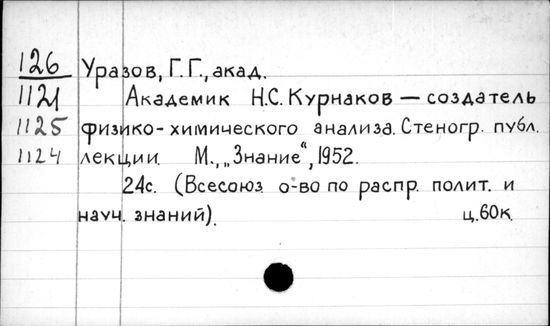 126 Уразов, Г.Г., акад.
1121 Академик Н.С. Курнаков — создатель
1125 физико-химического анализа. Стеногр. публ.
1124 лекции. М., „Знание“, 1952.
24с. (Всесоюз. о-во по распр. полит. и
науч. знаний). ц.60к.